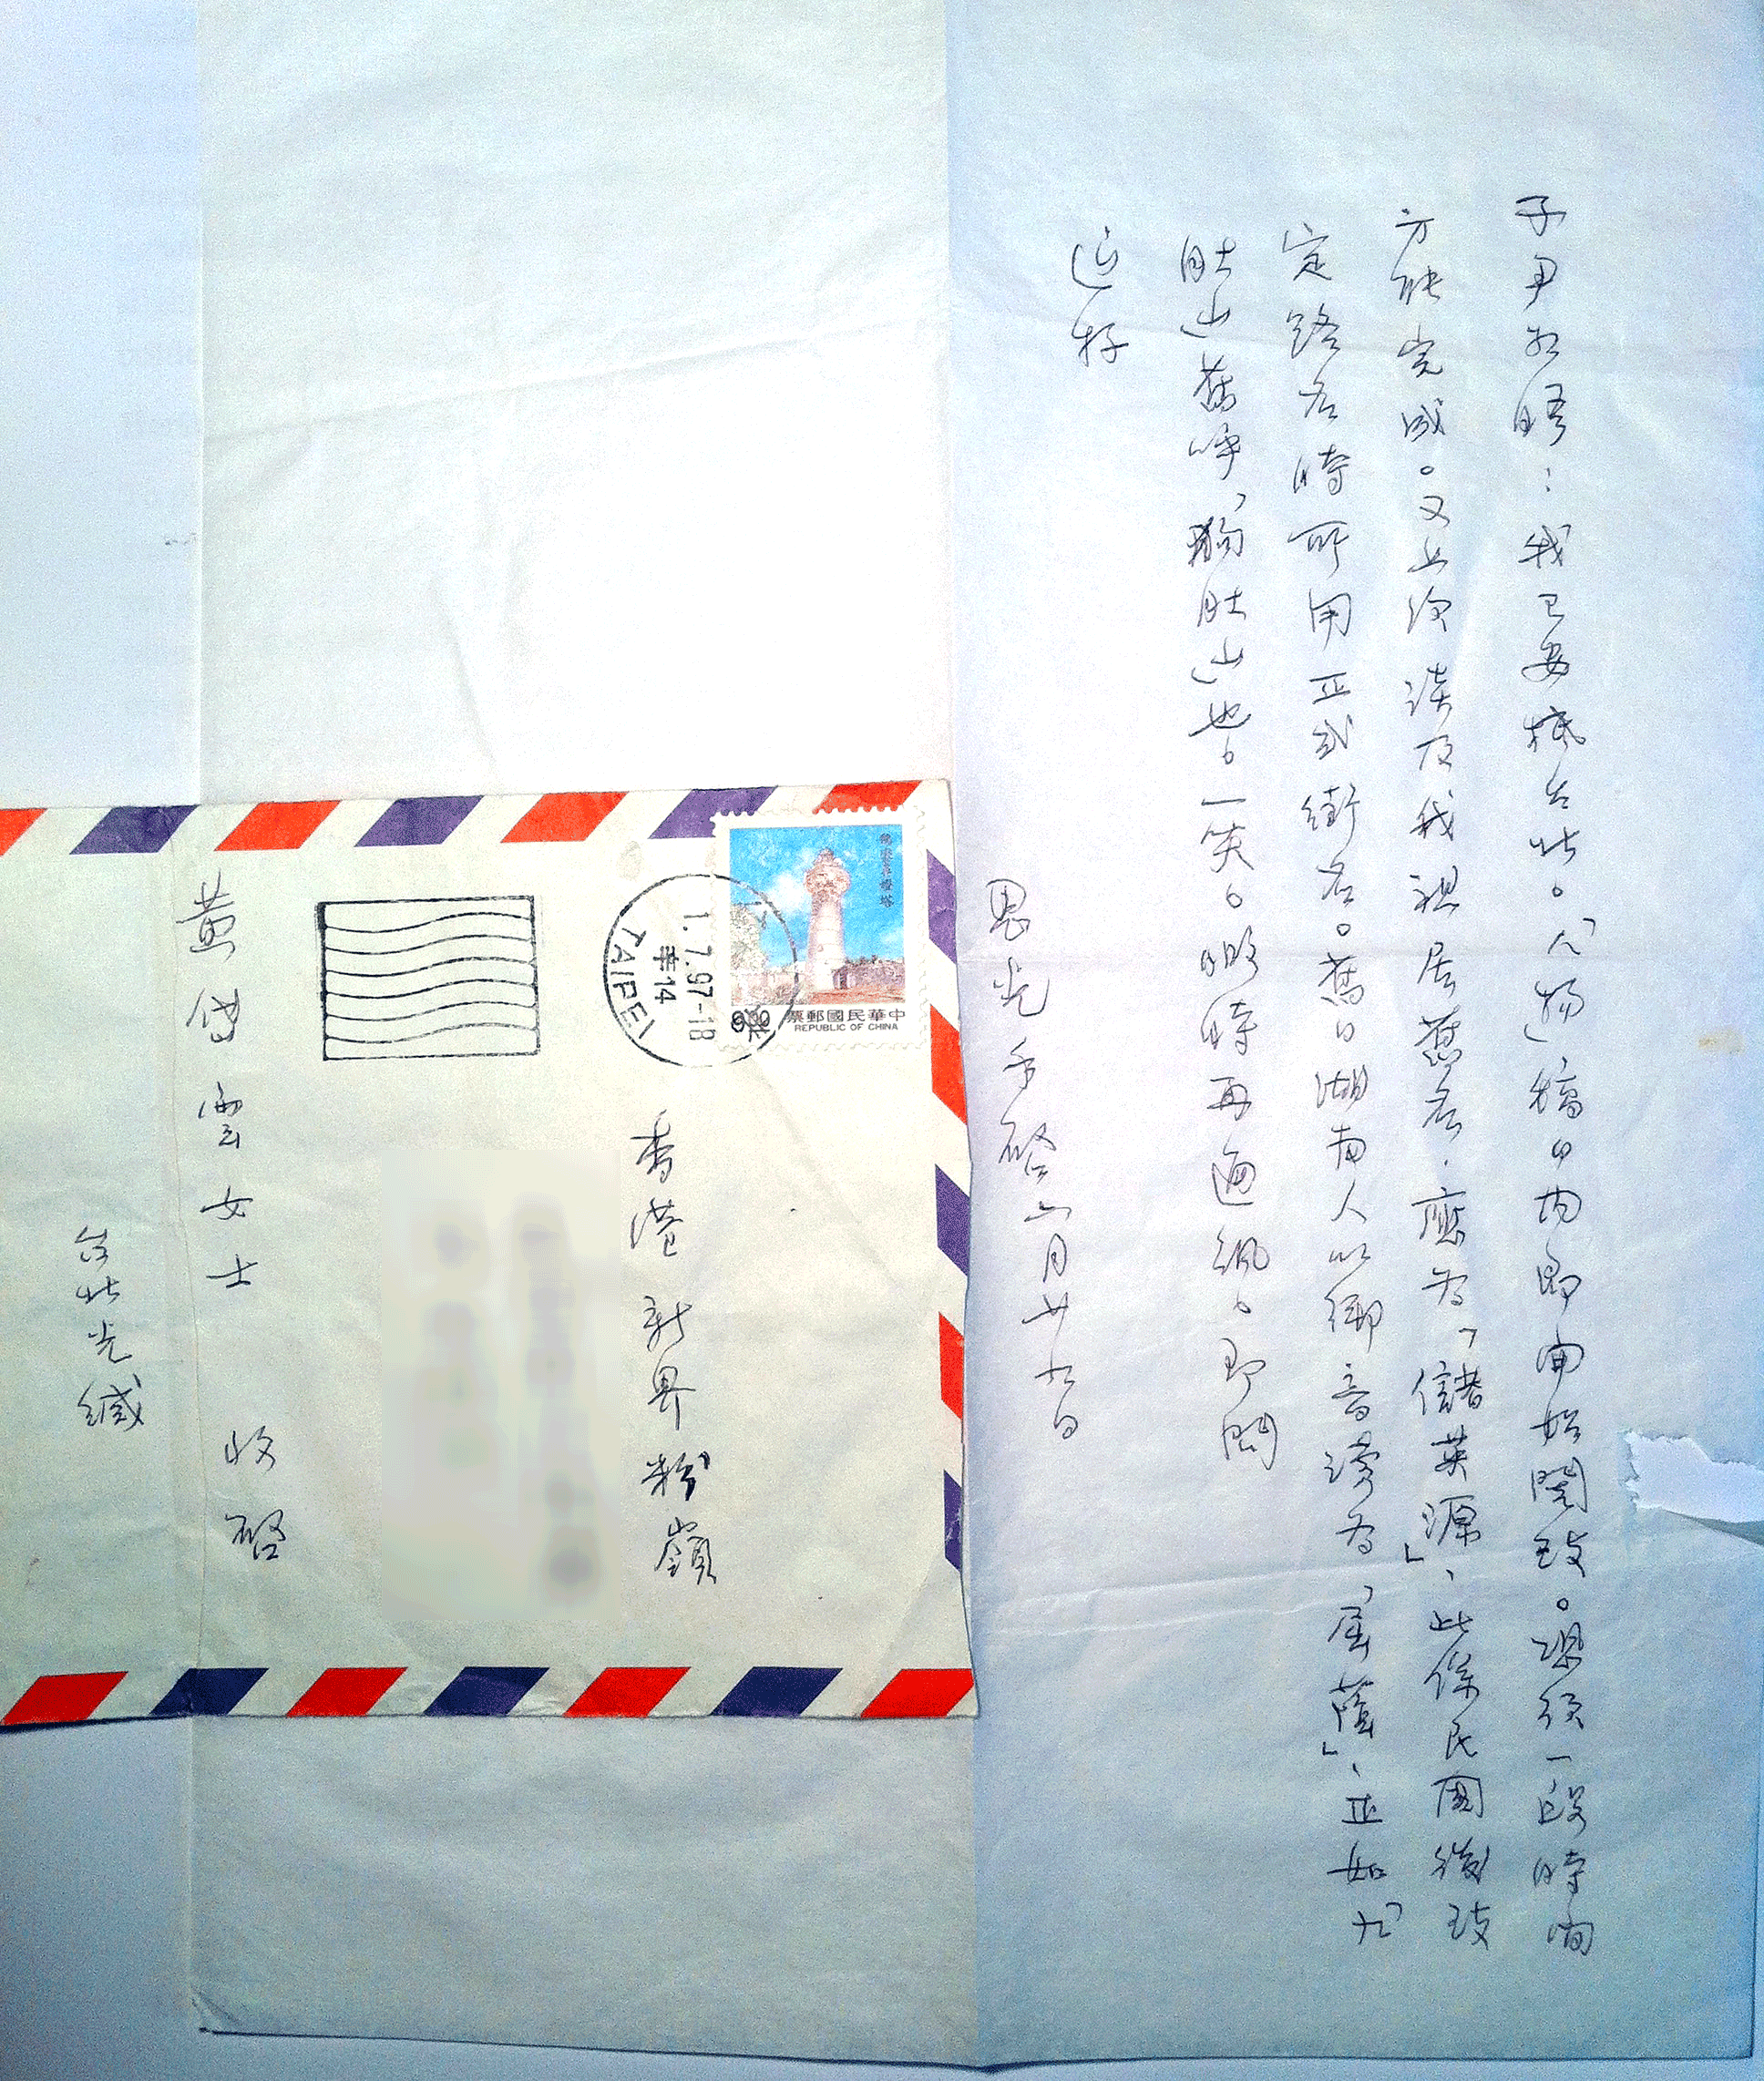 子尹如晤：我已安抵台北。「人物」稿日內即開始閱改。恐須一段時間
方能完成。又上次談及我祖居舊名．應為「儲英源」、此係民國後改
定路名時所用正式街名。舊日湖南人以鄉音讀為「屋蔭」、正如「九
肚山」舊呼「狗肚山」也。一笑。照時再通訊。即問
近好
思光手啓六月廿九日
鵝鑾鼻燈塔
9.00
中華民國郵票
REPUBLIC OF CHINA
1.7.97-18
TAIPEI
香港新界粉嶺
黃傳雲女士 收啓
台北光緘